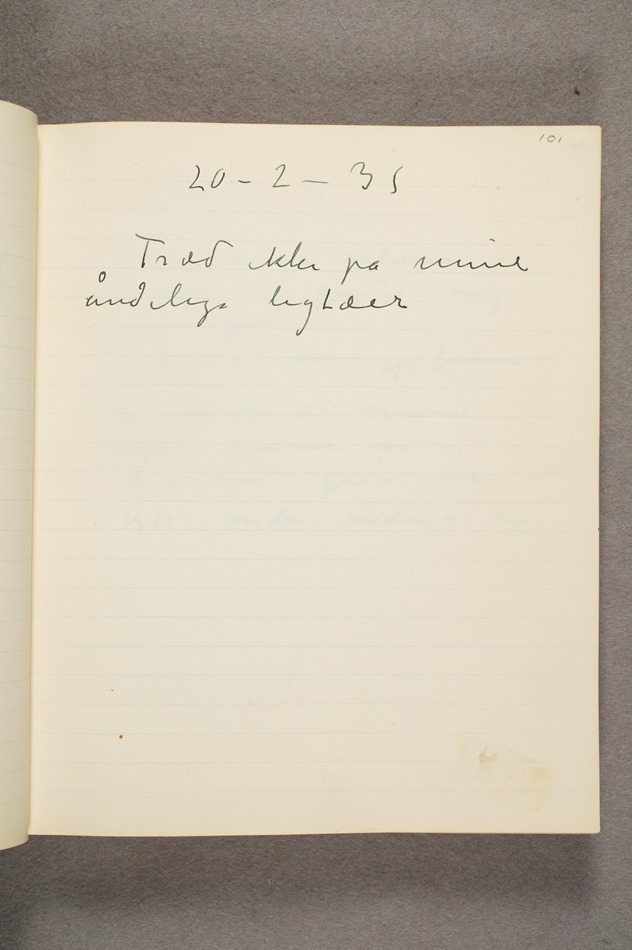 101
20 - 2 - 35
Træd ikke på mine
åndelige ligtæer